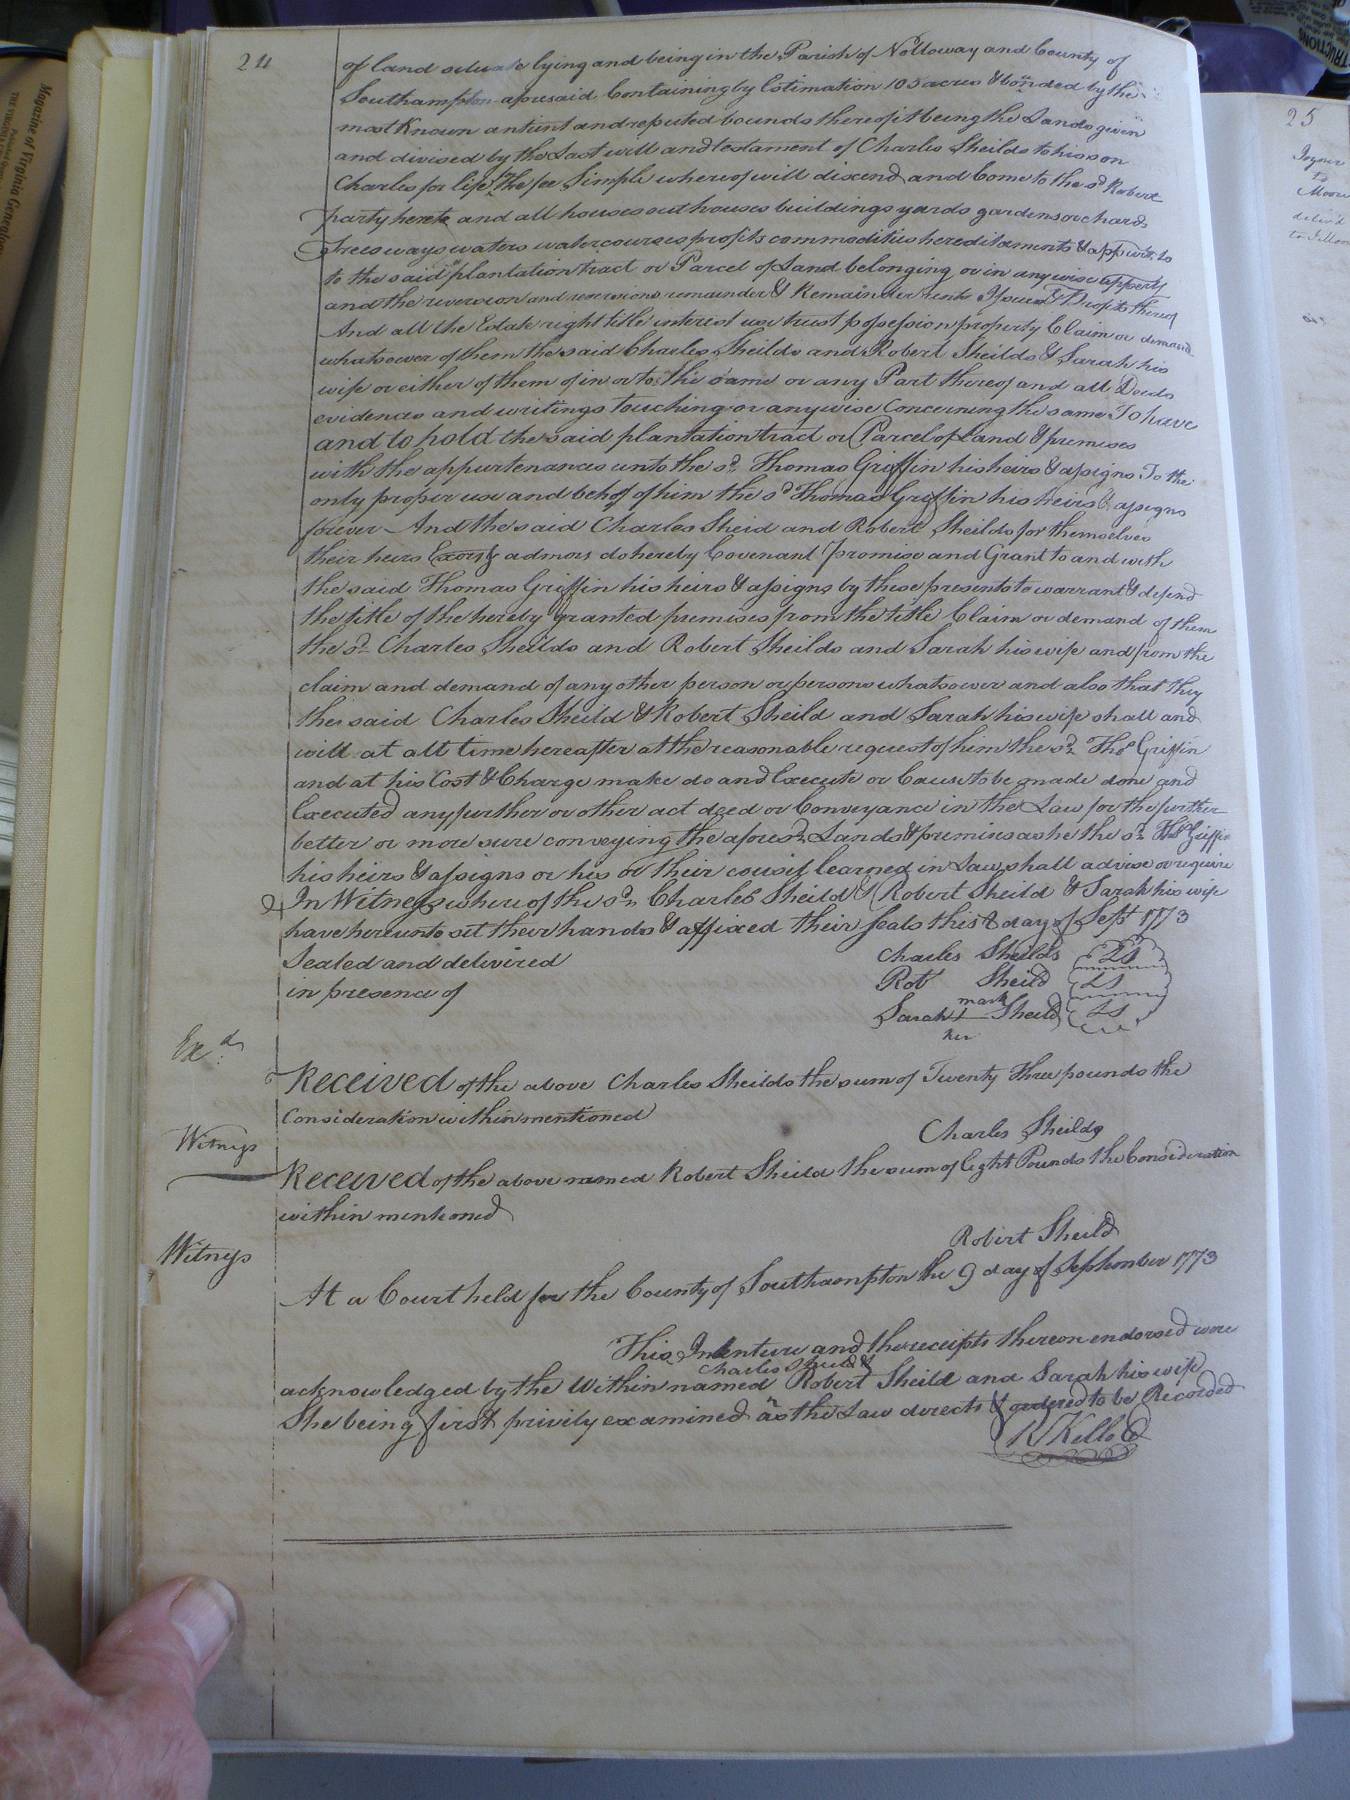 24
of land situate lying and being in the Parish of Nottoway and County of
Southampton aforesaid Containing by Estimation 105 acres & bonded by the
most Known antient and reputed bounds thereof it being the Lands given
and divised by the Last will and testament of Charles Sheilds to his son
Charles for life the fee Simple whereof will discend and Come to the sd Robert
party hereto and all houses outhouses buildings yards gardens orchards
trees ways waters watercourses profits commodities hereditaments & appurts to
to the said plantation tract or Parcel of Land belonging or in any wise apperty
and the reversion and reversions remainder & Remainders rents Issues & Profits thereof
And all the Estate right title interest use trust possession property Claim or demand
whatsoever of them the said Charles Sheilds and Robert Sheilds & Sarah his
wife or either of them of in or to the same or any Part thereof and all Deeds
evidences and writings touching or anywise Concerning the same To have
and to hold the said plantation tract or Parcel of Land & premises
with the appurtenances unto the sd Thomas Griffin his heirs & assigns To the
only proper use and behoof of him the sd Thomas Griffin his heirs & assigns
forever And the said Charles Sheid and Robert Sheilds for themselves
their heirs Exors & admors do hereby Covenant Promise and Grant to and with
the said Thomas Griffin his heirs & assigns by these presents to warrant & defend
the title of the hereby granted premises from the title Claim or demand of them
the sd Charles Sheilds and Robert Sheilds and Sarah his wife and from the
claim and demand of any other person or persons whatsoever and also that they
the said Charles Sheild & Robert Sheild and Sarah his wife shall and
will at all time hereafter at the reasonable request of him the sd Thos Griffin
and at his Cost & Charge make do and Execute or Cause to be made done and
Executed any further or other act deed or Conveyance in the Law for the further
better or more sure conveying the aforesd Lands & premises as he the sd Thos Griffin
his heirs & assigns or his or their cousil learned in Law shall advise or require
In Witness where of the sd Charles Sheild & Robert Sheild & Sarah his wife
have hereunto set their hands & affixed their seals this 8 day of Sept 1773
Sealed and delivered
in presence of
Charles Sheilds LS
Robt Sheild LS
mark
Sarah + Sheild LS
her
Exd
Received of the above Charles Sheilds the sum of Twenty Three pounds the
Consideration within mentioned
Charles Sheilds
Witness
Received of the above named Robert Sheild the sum of Eight Pounds the Consideration
within mentioned
Robert Sheild
Witness
At a Court held for the County of Southampton the 9 day of September 1773
This Indenture and the receipts thereon endorsed were
Charles Sheild &
acknowledged by the within named Robert Sheild and Sarah his wife
She being first privily examined as the Law directs & ordered to be Recorded
R Kello C
25
Joyner
to
Moore
deliv'd
Magazine of Virginia Genealogy